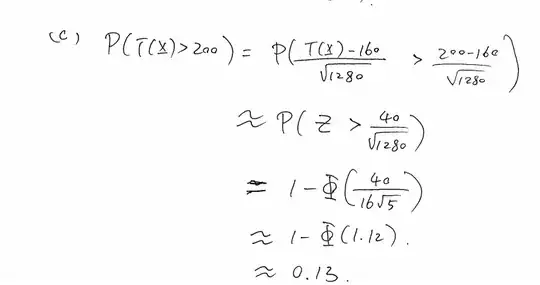 (c) P(T(X)>200) = P( (T(X)-160)/√1280 > (200-160)/√1280 )
≈ P( Z > 40/√1280 )
= 1 - Φ( 40/(16√5) )
≈ 1 - Φ(1.12).
≈ 0.13.